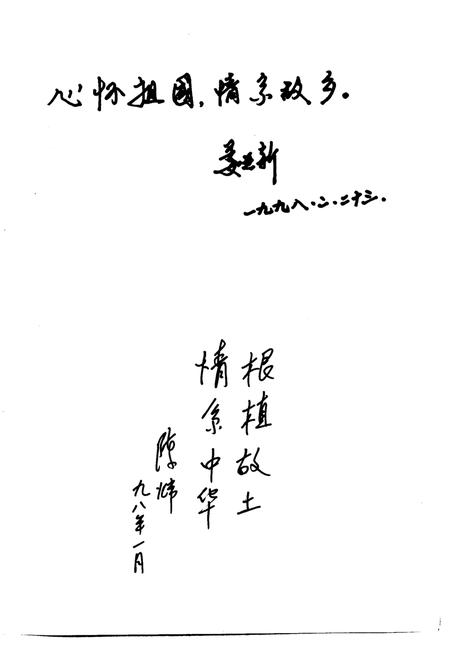 心怀祖国，情系故乡。
姜亚新
一九九八.二.二十三.
根植故土
情系中华
陈炜
九八年一月